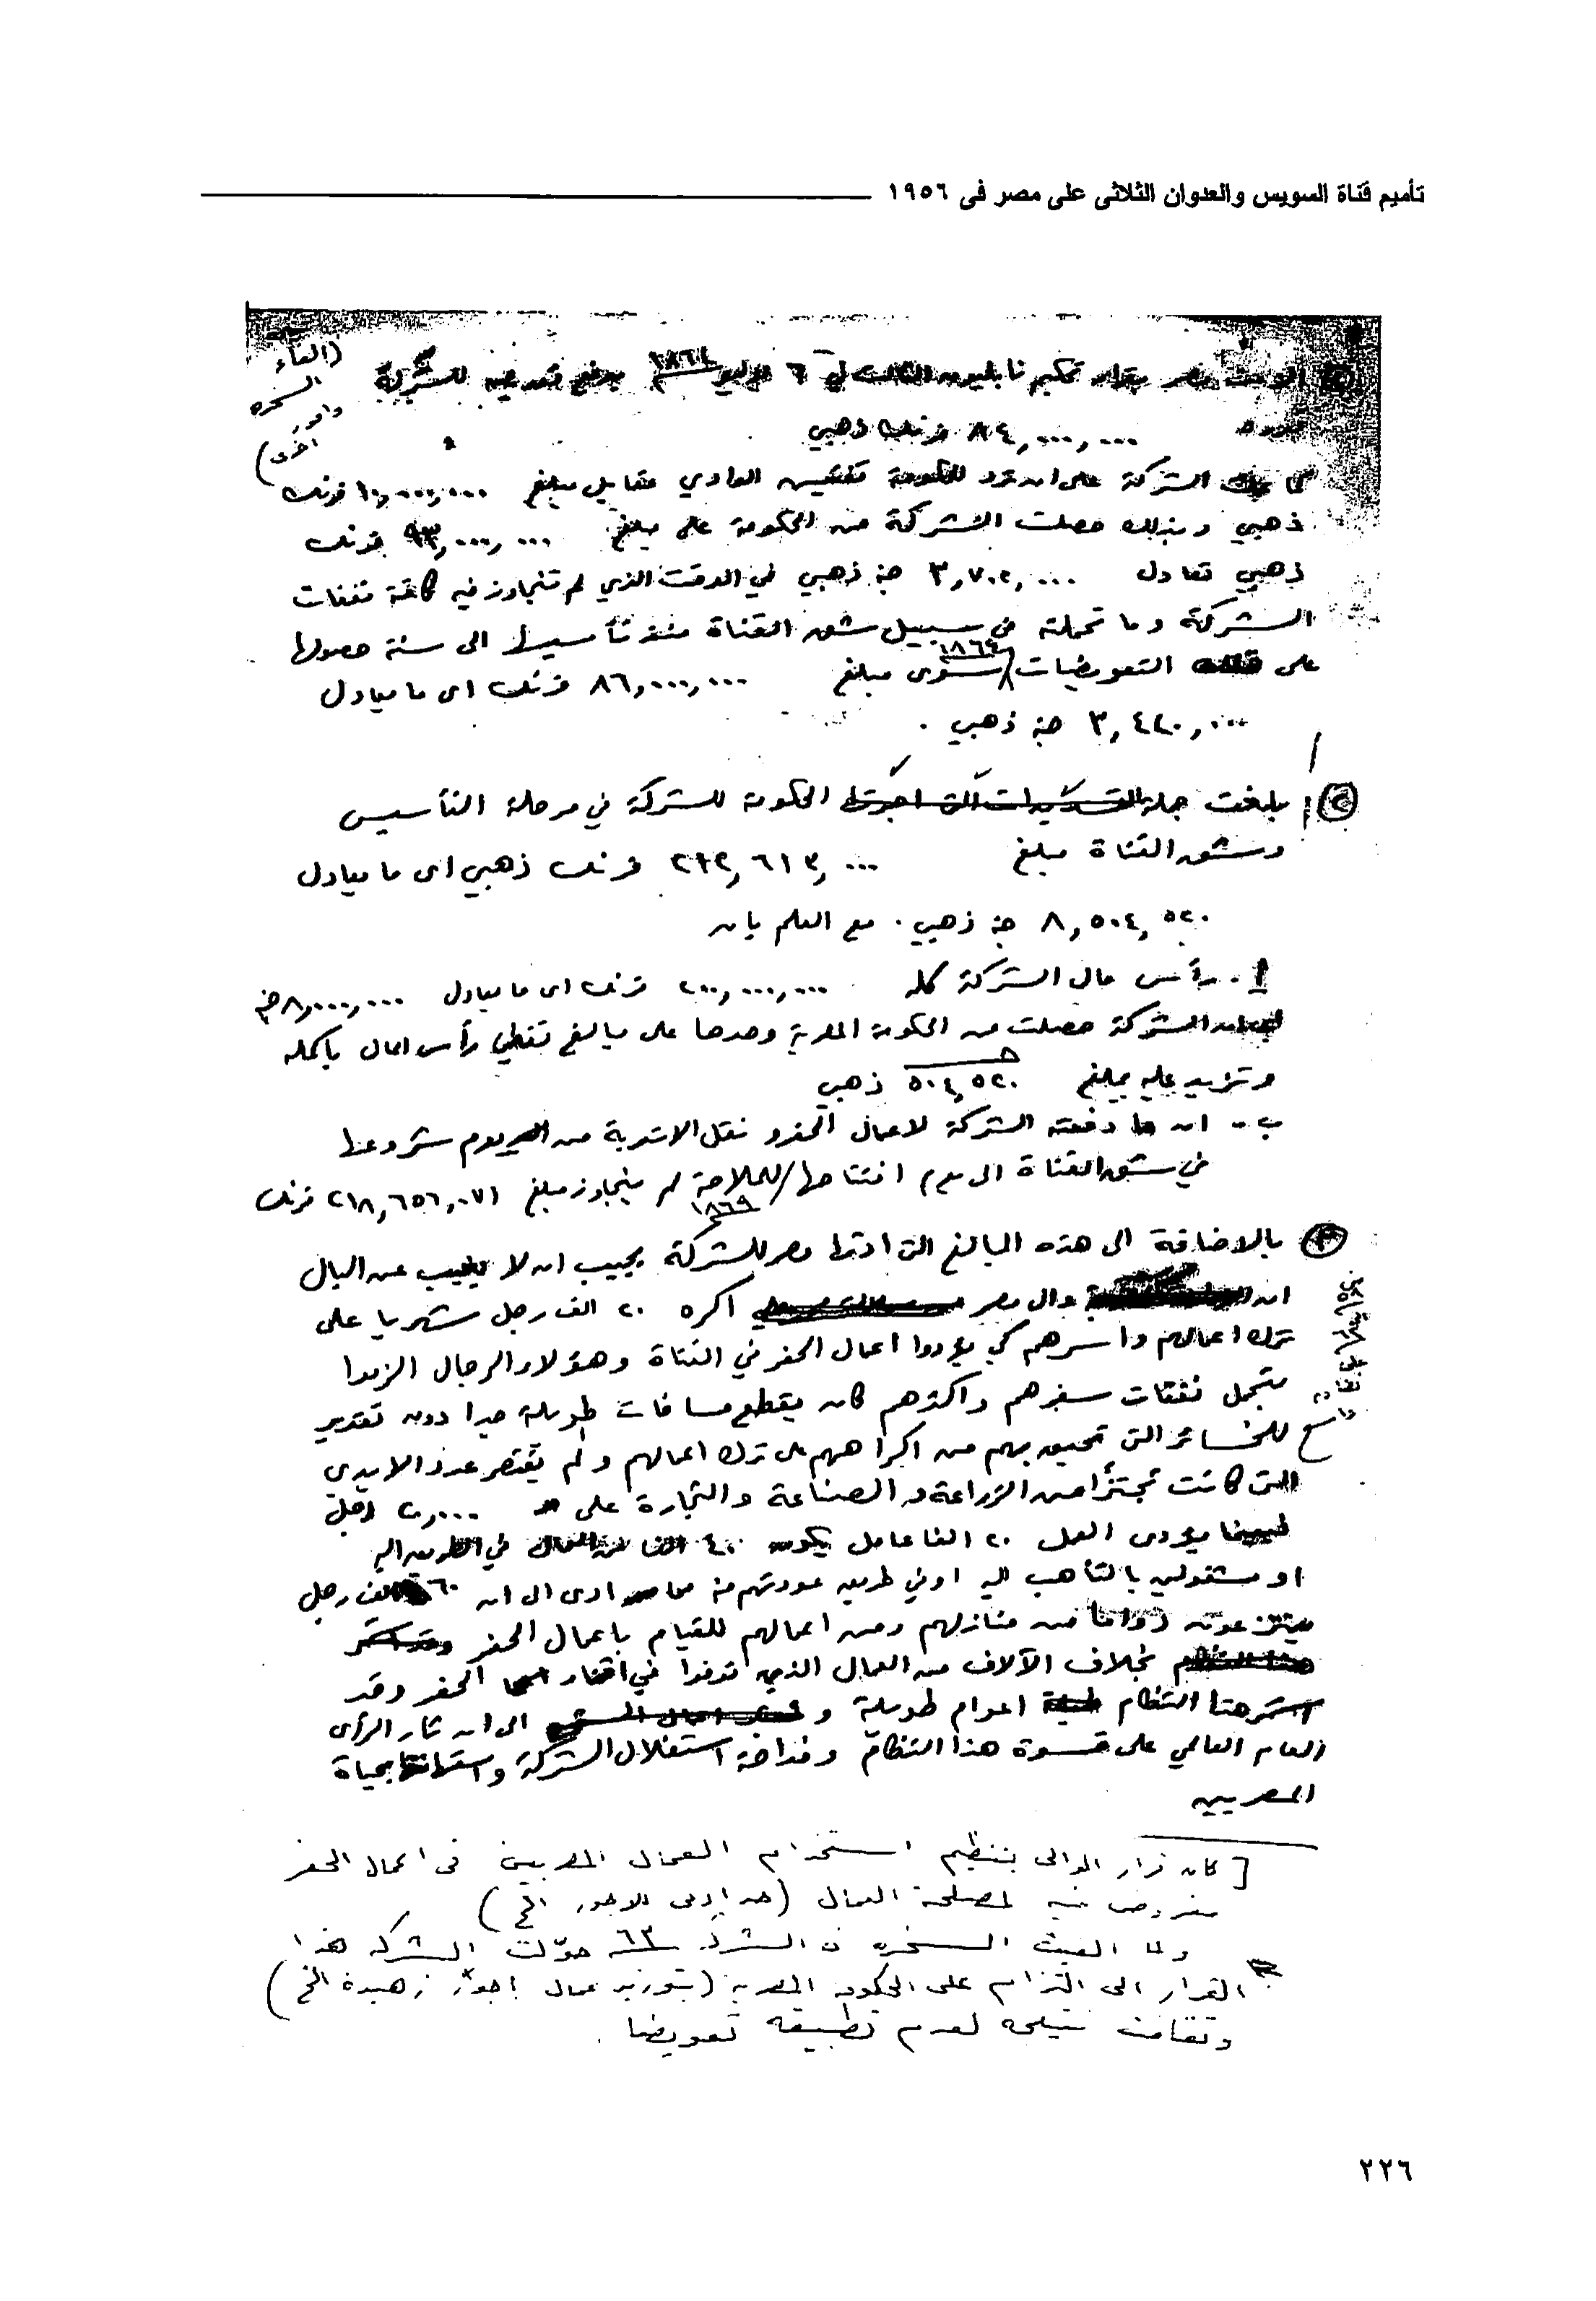 تأميم قناة السويس والعدوان الثلاثى على مصر فى ١٩٥٦
(الغاء
السخره
وامور
اخرى)
الزمت مصر بقرار تحكيم نابليون الثالث فى ٦ يوليو ١٨٦٤ بدفع تعويض للشركة
٨٤,٠٠٠,٠٠٠ فرنك ذهبي
الشركة على ان ترد للحكومة تفتيش الوادي مقابل مبلغ ١٠,٠٠٠,٠٠٠ فرنك
ذهبي وبذلك حصلت الشركة من الحكومة على مبلغ ٩٣,٠٠٠,٠٠٠ فرنك
ذهبي تعادل ٣,٧٠٢,٠٠٠ جنيه ذهبي في الوقت الذي لم تتجاوز فيه كافة نفقات
الشركة وما تحملته في سبيل شق القناة منذ تأسيسها الى سنة حصولها
على التعويضات ١٨٦٤ سوى مبلغ ٨٦,٠٠٠,٠٠٠ فرنك اى ما يعادل
٣,٤٤٠,٠٠٠ جنيه ذهبي .
بلغت جملة التى الحكومة للشركة في مرحلة التأسيس
وشق القناة مبلغ ٢١٢,٦١٣,٠٠٠ فرنك ذهبي اى ما يعادل
٨,٥٠٤,٥٢٠ جنيه ذهبي . مع العلم بان
أ - رأس مال الشركة كله ٢٠٠,٠٠٠,٠٠٠ فرنك اى ما يعادل ٨,٠٠٠,٠٠٠ جنيه
الشركة حصلت من الحكومة المصرية وحدها على مبالغ تغطي رأس المال بأكمله
وتزيد عليه بمبلغ ٥٠٤,٥٢٠ ذهبي
ب - ان ما دفعته الشركة لاعمال الحفر ونقل الاتربة من يوم شروعها
في شق القناة الى يوم افتتاحها للملاحة ١٨٦٩ لم يتجاوز مبلغ ٢١٨,٦٥٦,٠٧١ فرنك
٣ بالاضافة الى هذه المبالغ التى ادتها مصر للشركة يجب ان لا يغيب عن البال
ان والى مصر اكره ٢٠ الف رجل شهريا على
ترك اعمالهم واسرهم كي يؤدوا اعمال الحفر في القناة وهؤلاء الرجال الزموا
بتحمل نفقات سفرهم واكثرهم كان يقطع مسافات طويلة جدا دون تقدير
للخسائر التى تحيق بهم من اكراههم على ترك اعمالهم ولم يقتصر عدد الايدي
التى كانت تجتزأ من الزراعة والصناعة والتجارة على ٢٠,٠٠٠ رجل
فبينما يؤدى العمل ٢٠ الفا عامل يكون ٤٠ الفا في الطريق اليه
او مشغولين بالتأهب اليه او في طريق عودتهم منه مما ادى الى ان ٦٠ الف رجل
ينتزعون دواما من منازلهم ومن اعمالهم للقيام باعمال الحفر
بخلاف الآلاف من العمال الذين توفوا في اثناء الحفر وقد
استمر هذا النظام اعوام طويلة و الى ان ثار الرأى
العام العالمي على قسوة هذا النظام وفداحة استغلال الشركة واستهانتها بحياة
المصريين
[ كان قرار الوالى بتنظيم استخدام العمال المصريين فى اعمال الحفر
مفروض فيه لمصلحة العمال (حد ادنى للاجور الخ)
ولما الغيت السخره ٦٣ حوّلت الشركه هذا
القرار الى التزام على الحكومه المصريه (بتوريد عمال باجور زهيدة الخ)
وتقاضت نتيجه لعدم تطبيقه تعويضا .
٢٢٦